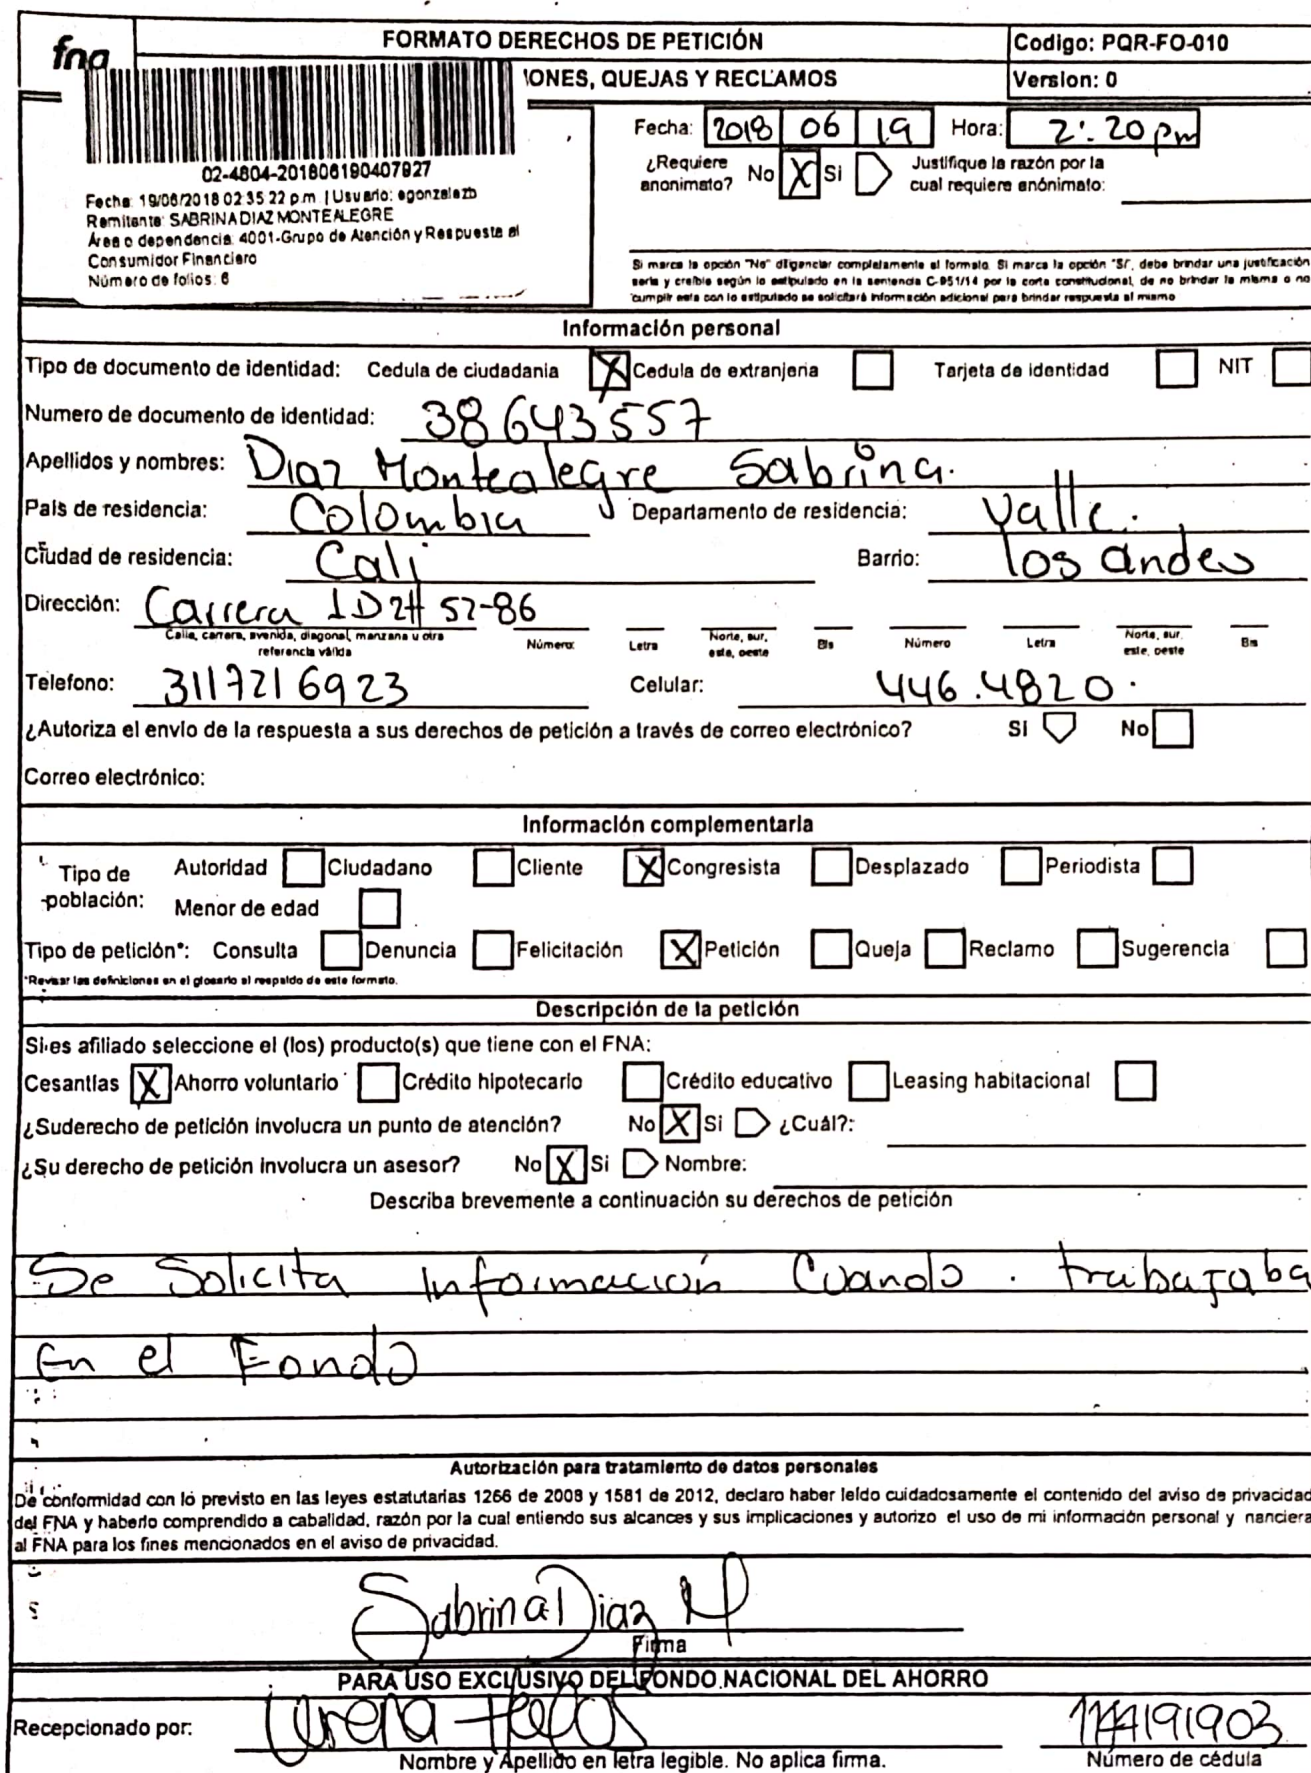 fna
FORMATO DERECHOS DE PETICIÓN
Codigo: PQR-FO-010
IONES, QUEJAS Y RECLAMOS
Version: 0
02-4804-201806190407927
Fecha: 19/06/2018 02:35:22 p.m. | Usuario: egonzalezb
Remitente: SABRINA DIAZ MONTEALEGRE
Área o dependencia: 4001-Grupo de Atención y Respuesta al
Consumidor Financiero
Número de folios: 6
Fecha: 2018 06 19 Hora: 2:20 pm
¿Requiere anonimato? No X Si Justifique la razón por la cual requiere anónimato:
Si marca la opción "No" diligenciar completamente el formato. Si marca la opción "Si", debe brindar una justificación
seria y creíble según lo estipulado en la sentencia C-951/14 por la corte constitucional, de no brindar la misma o no
cumplir esta con lo estipulado se solicitará información adicional para brindar respuesta al mismo
Información personal
Tipo de documento de identidad: Cedula de ciudadania X Cedula de extranjeria Tarjeta de identidad NIT
Numero de documento de identidad: 38643557
Apellidos y nombres: Diaz Montealegre Sabrina.
País de residencia: Colombia Departamento de residencia: Valle.
Ciudad de residencia: Cali Barrio: los andes
Dirección: Carrera 1D2# 52-86
Calle, carrera, avenida, diagonal, manzana u otra referencia válida Número: Letra Norte, sur, este, oeste Bis Número Letra Norte, sur, este, oeste Bis
Telefono: 3117216923 Celular: 446.4820.
¿Autoriza el envío de la respuesta a sus derechos de petición a través de correo electrónico? Si No
Correo electrónico:
Información complementaria
Tipo de población: Autoridad Ciudadano Cliente X Congresista Desplazado Periodista
Menor de edad
Tipo de petición*: Consulta Denuncia Felicitación X Petición Queja Reclamo Sugerencia
*Revisar las definiciones en el glosario al respaldo de este formato.
Descripción de la petición
Si es afiliado seleccione el (los) producto(s) que tiene con el FNA:
Cesantías X Ahorro voluntario Crédito hipotecario Crédito educativo Leasing habitacional
¿Suderecho de petición involucra un punto de atención? No X Si ¿Cuál?:
¿Su derecho de petición involucra un asesor? No X Si Nombre:
Describa brevemente a continuación su derechos de petición
Se Solicita Información Cuando . trabajaba
En el Fondo
Autorización para tratamiento de datos personales
De conformidad con lo previsto en las leyes estatutarias 1266 de 2008 y 1581 de 2012, declaro haber leído cuidadosamente el contenido del aviso de privacidad
del FNA y haberlo comprendido a cabalidad, razón por la cual entiendo sus alcances y sus implicaciones y autorizo el uso de mi información personal y nanciera
al FNA para los fines mencionados en el aviso de privacidad.
Sabrina Diaz M
Firma
PARA USO EXCLUSIVO DEL FONDO NACIONAL DEL AHORRO
Recepcionado por:
Nombre y Apellido en letra legible. No aplica firma.
Número de cédula